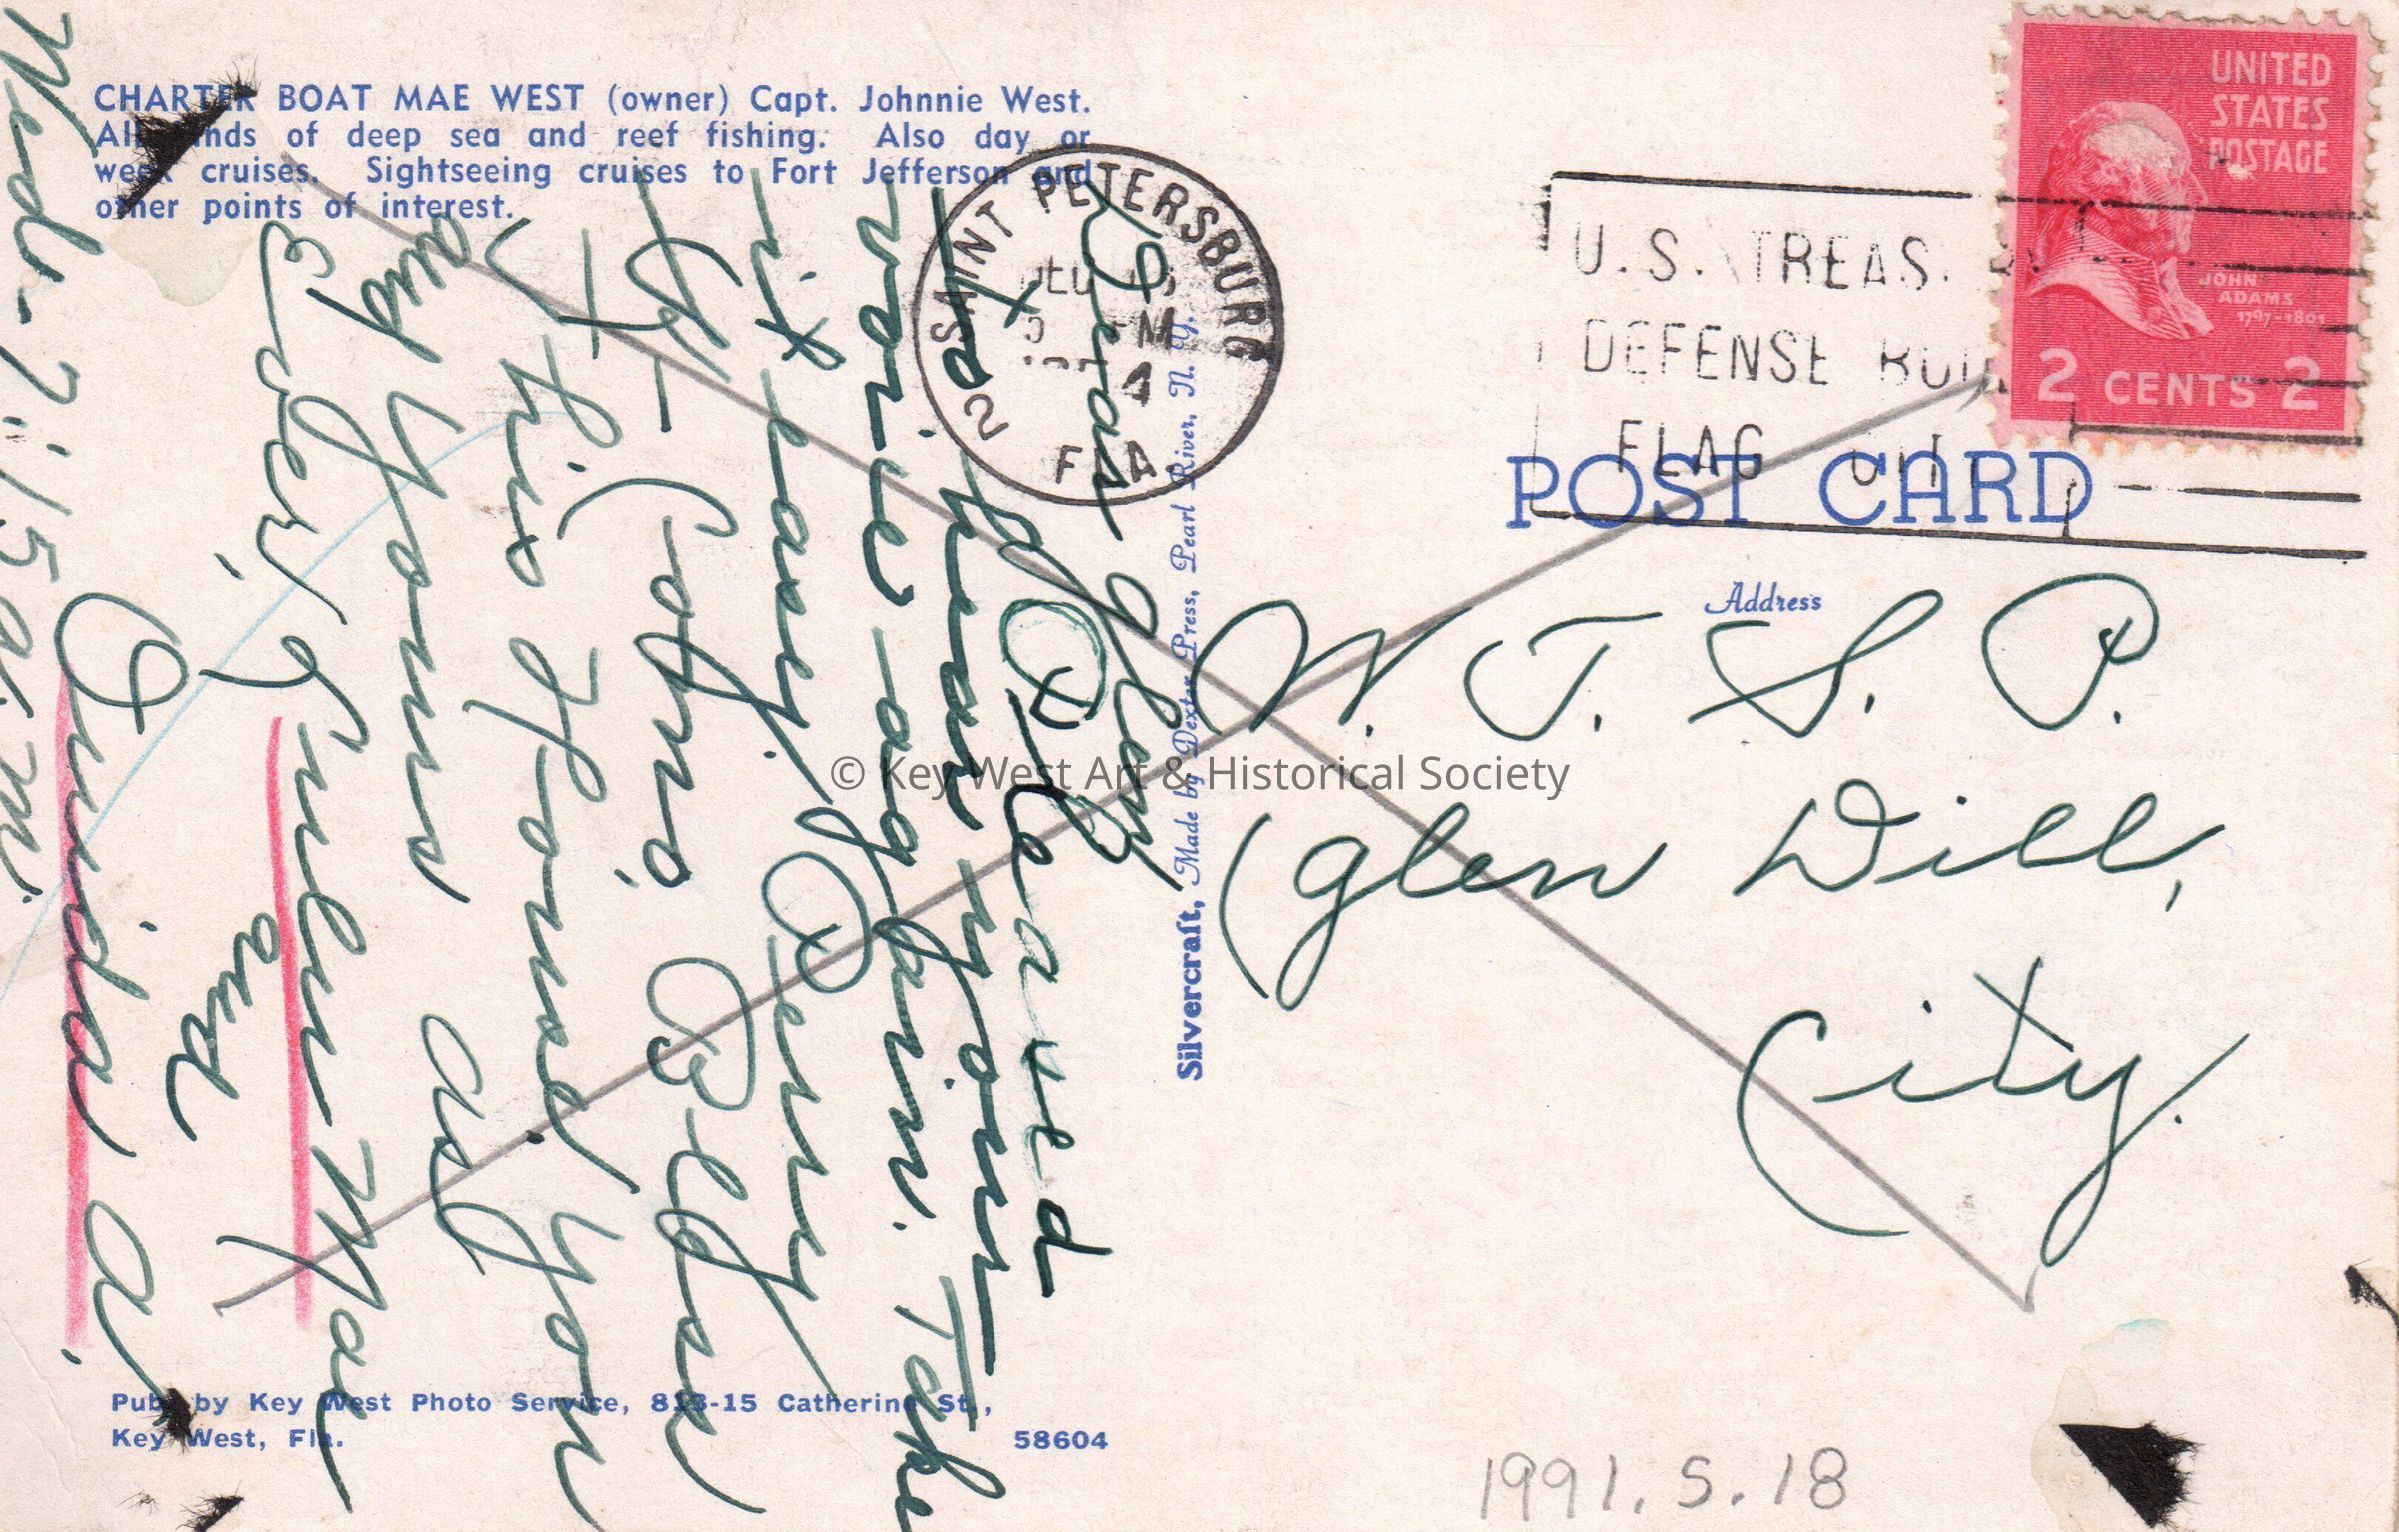 CHARTER BOAT MAE WEST (owner) Capt. Johnnie West.
All kinds of deep sea and reef fishing. Also day or
week cruises. Sightseeing cruises to Fort Jefferson and
other points of interest.
Dear Glen,
Pleased
to hear your
voice again. Take
it easy. Perry
Como,
you
and yours as
Ever, Lulu Mae
and
Ouida A.
Wed - 7:15 a.m.
Pub. by Key West Photo Service, 813-15 Catherine St.,
Key West, Fla.
58604
Silvercraft, Made by Dexter Press, Pearl River, N. Y.
SAINT PETERSBURG
FLA
2
UNITED
STATES
POSTAGE
JOHN
ADAMS
1797-1801
2 CENTS 2
U.S. TREAS.
DEFENSE
FLAG
POST CARD
Address
W. T. S. P.
Glen Dill,
City.
1991.5.18
© Key West Art & Historical Society